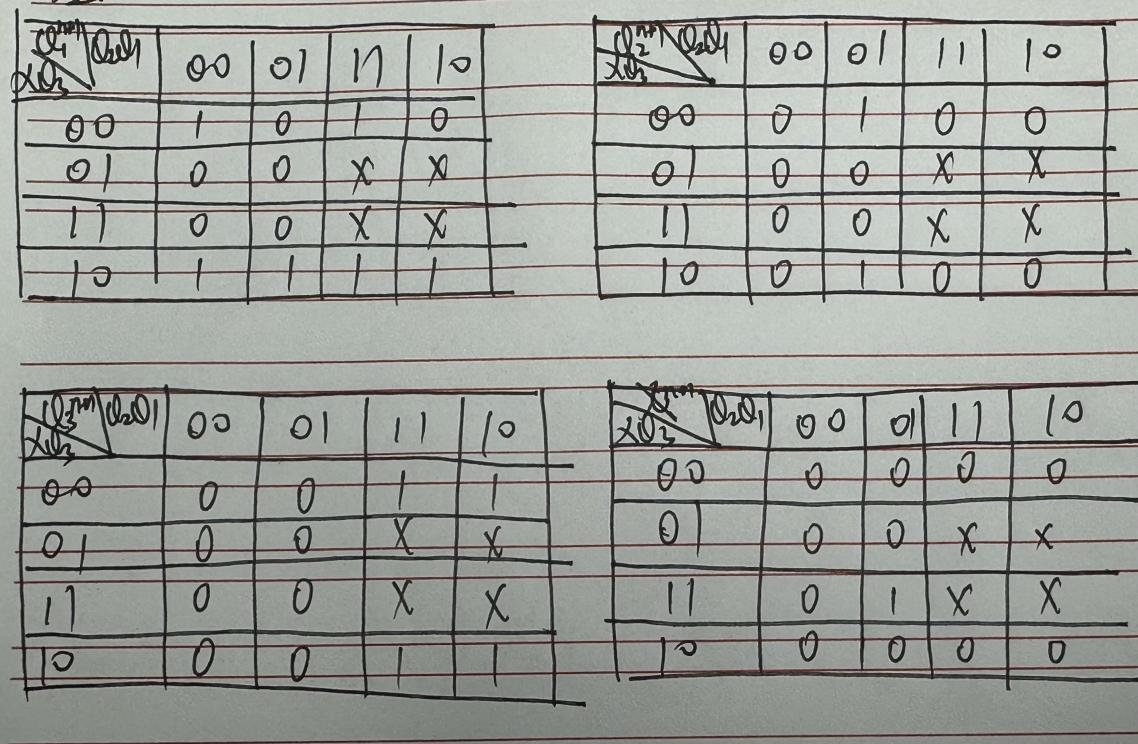 Q₁ⁿ⁺¹ Q₂Q₁ 00 01 11 10
XQ₃
00 1 0 1 0
01 0 0 X X
11 0 0 X X
10 1 1 1 1
Q₂ⁿ⁺¹ Q₂Q₁ 00 01 11 10
XQ₃
00 0 1 0 0
01 0 0 X X
11 0 0 X X
10 0 1 0 0
Q₃ⁿ⁺¹ Q₂Q₁ 00 01 11 10
XQ₃
00 0 0 1 1
01 0 0 X X
11 0 0 X X
10 0 0 1 1
Q₂Q₁ 00 01 11 10
XQ₃
00 0 0 0 0
01 0 0 X X
11 0 1 X X
10 0 0 0 0